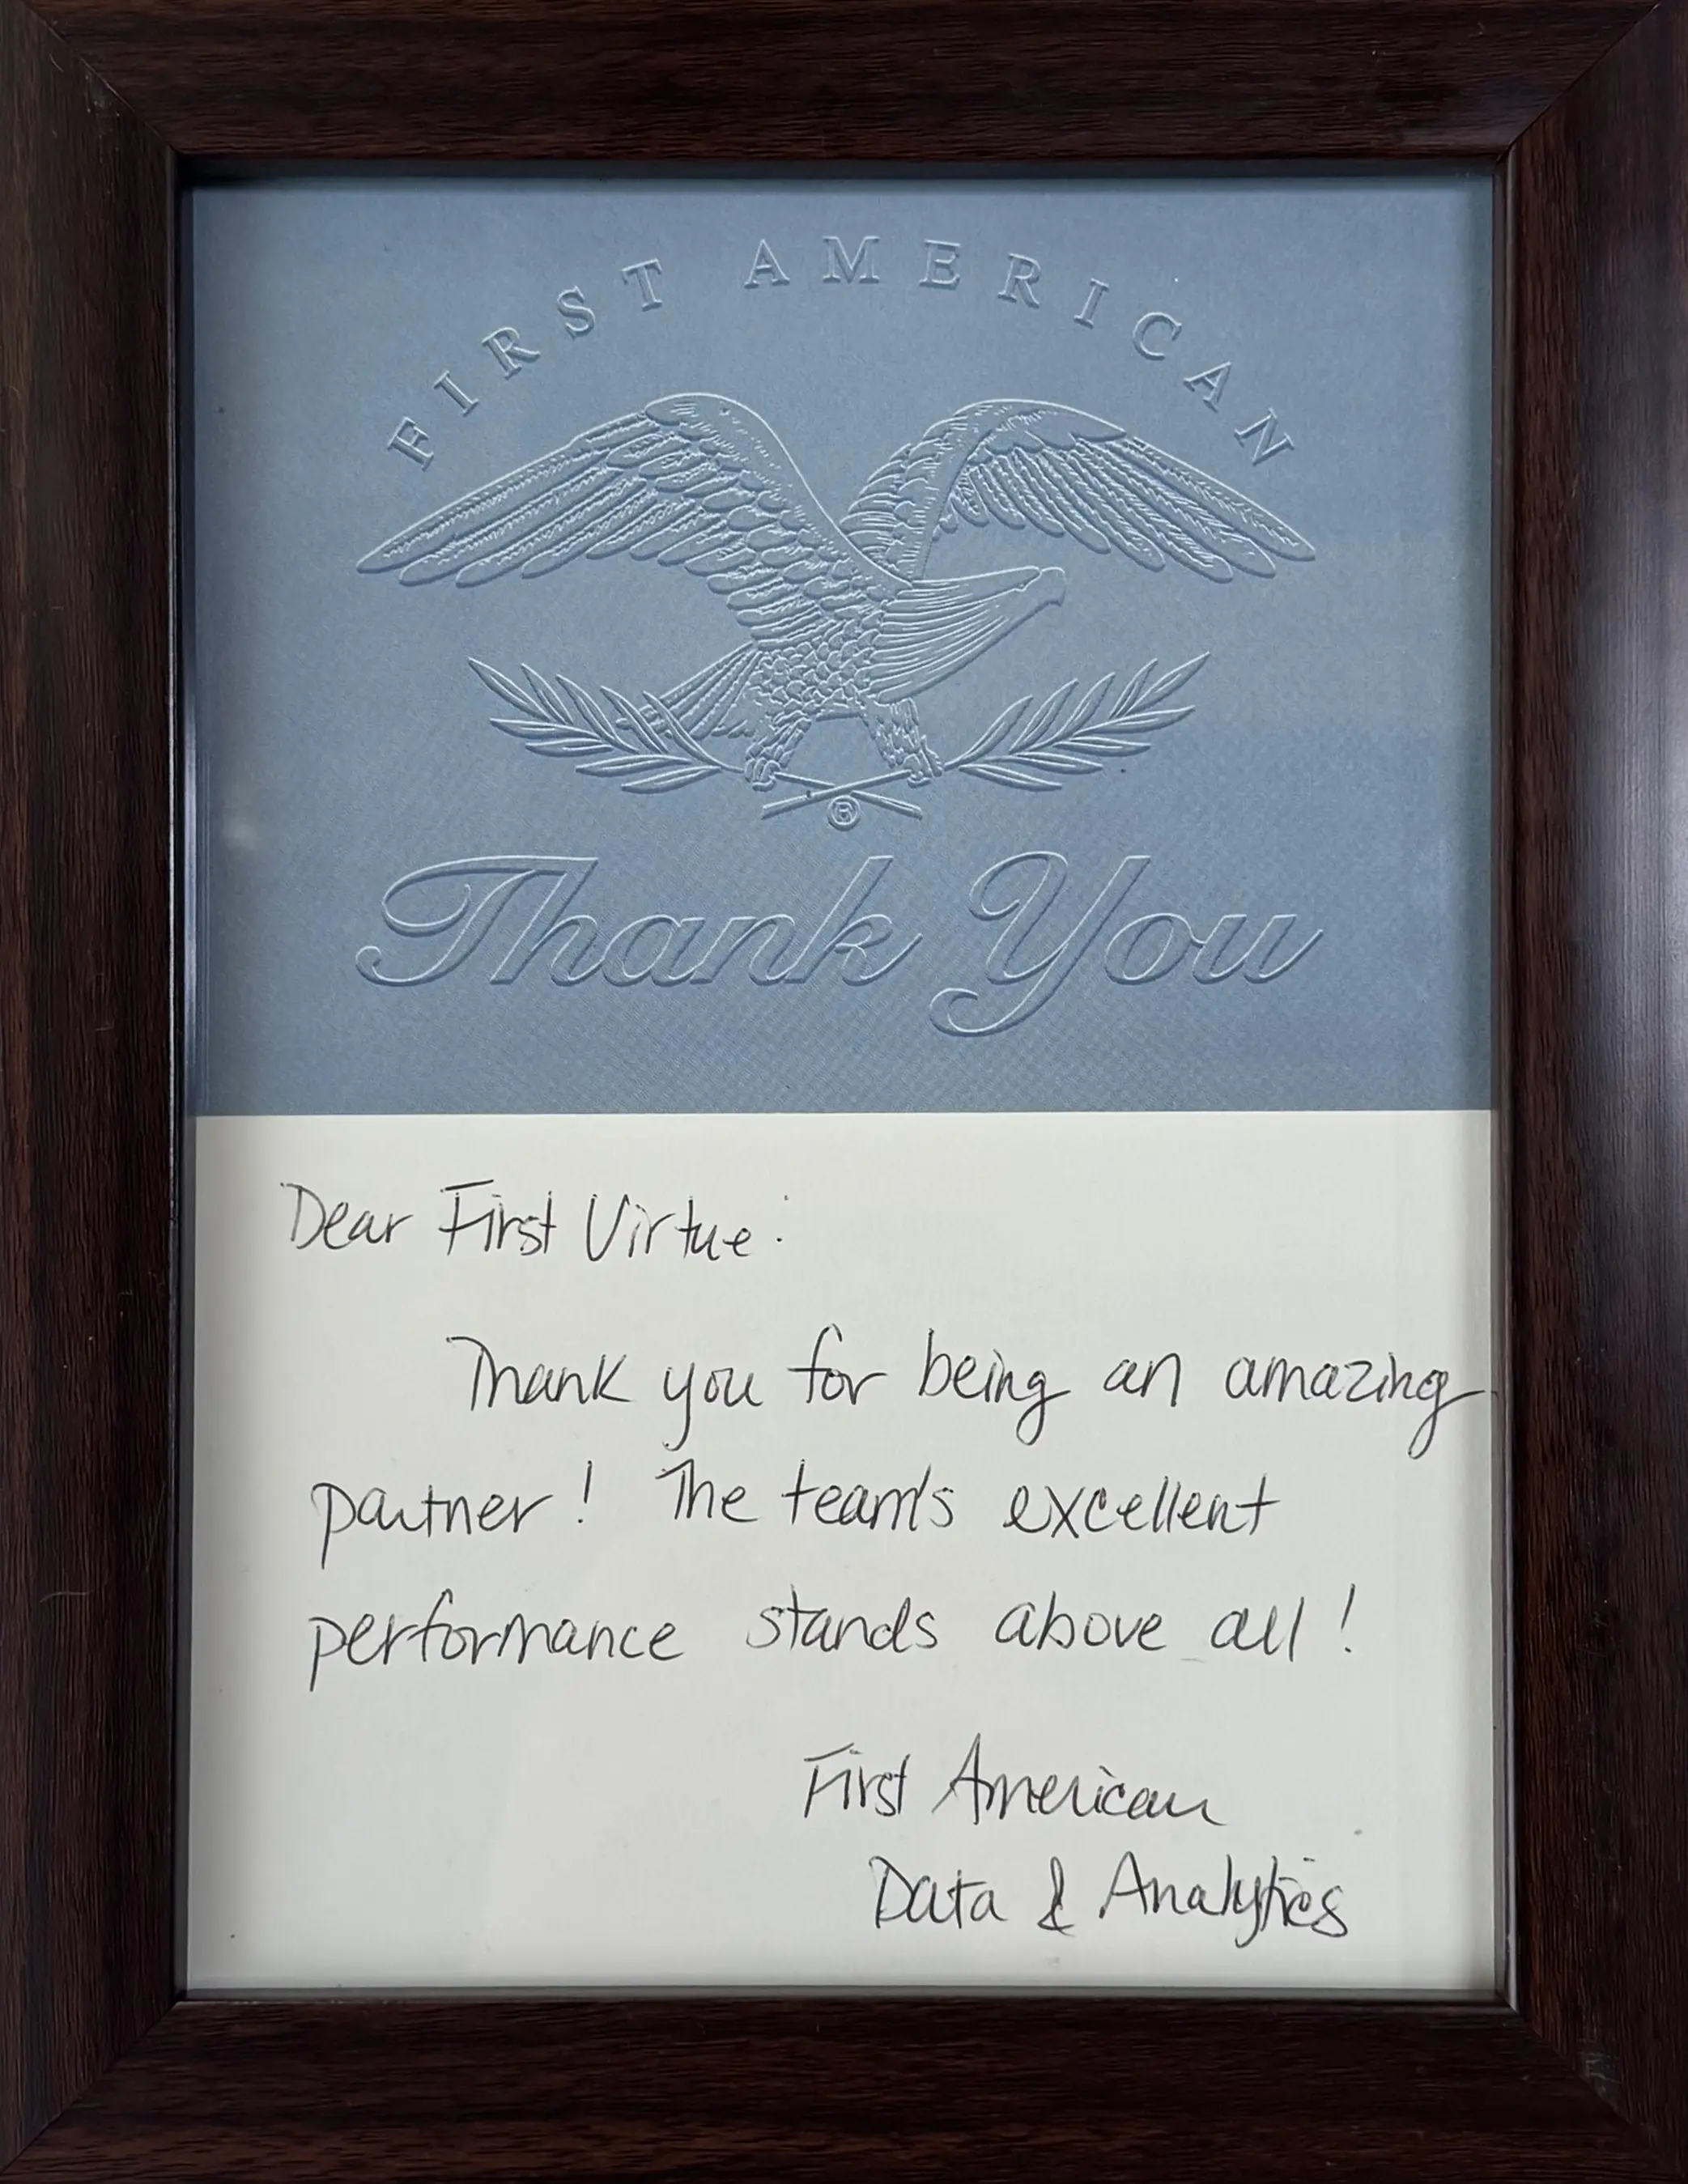 FIRST AMERICAN
®
Thank You
Dear First Virtue:
Thank you for being an amazing
partner! The team's excellent
performance stands above all!
First American
Data & Analytics